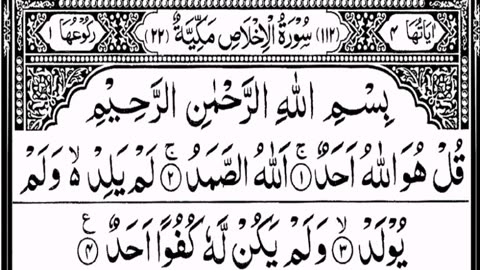 اٰيَاتُهَا ٤ (١١٢) سُوْرَةُ الْاِخْلَاصِ مَكِّيَّةٌ (٢٢) رُكُوْعُهَا ١
بِسْمِ اللّٰهِ الرَّحْمٰنِ الرَّحِيْمِ
قُلْ هُوَ اللّٰهُ اَحَدٌ ۚ ١ اَللّٰهُ الصَّمَدُ ۚ ٢ لَمْ يَلِدْ ە ۙ وَلَمْ
يُوْلَدْ ۙ ٣ وَلَمْ يَكُنْ لَّهٗ كُفُوًا اَحَدٌ ٤ ع